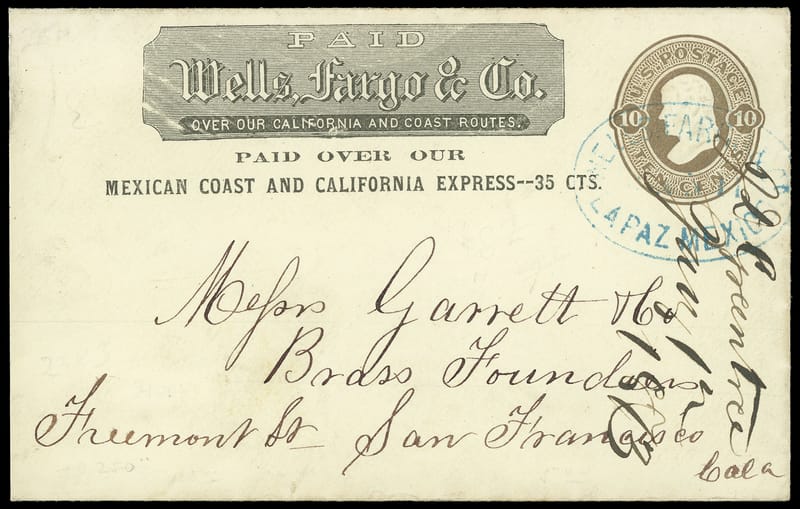 PAID
Wells, Fargo & Co.
OVER OUR CALIFORNIA AND COAST ROUTES.
PAID OVER OUR
MEXICAN COAST AND CALIFORNIA EXPRESS--35 CTS.
U.S. POSTAGE
10 10
TEN CENTS
WELLS FARGO & CO
LA PAZ MEXICO
Messrs Garrett & Co
Brass Founders
Freemont St San Francisco
Cala